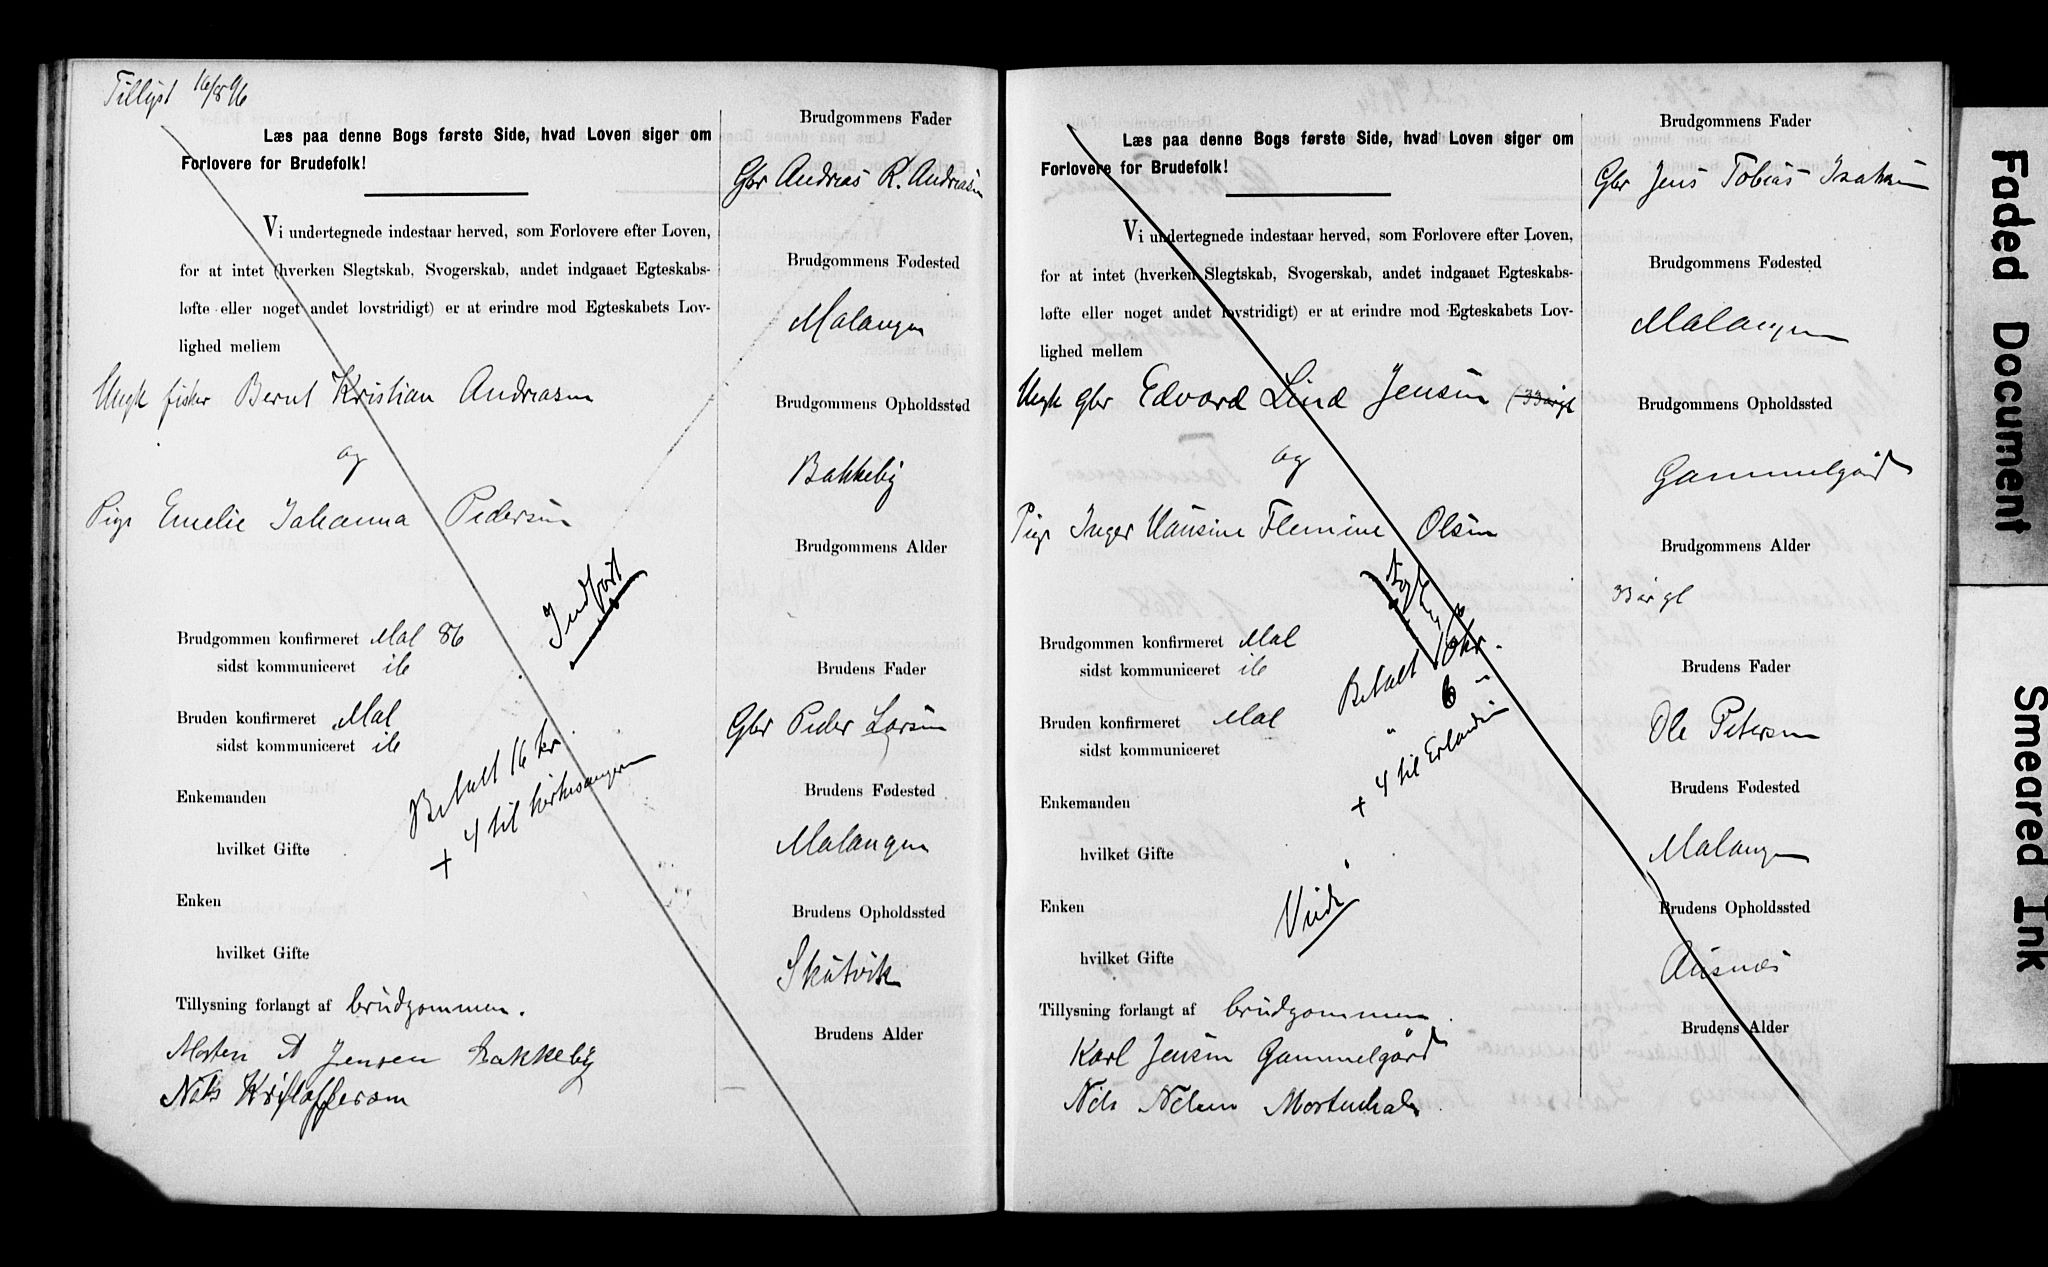 Tillyst 16/8 96
Læs paa denne Bogs første Side, hvad Loven siger om
Forlovere for Brudefolk!
Vi undertegnede indestaar herved, som Forlovere efter Loven,
for at intet (hverken Slegtskab, Svogerskab, andet indgaaet Egteskabs-
løfte eller noget andet lovstridigt) er at erindre mod Egteskabets Lov-
lighed mellem
Ungk fisker Bernt Kristian Andreasen
og
Pige Emelie Johanna Pedersen
Indført
Brudgommen konfirmeret Mal 86
sidst kommuniceret ib
Bruden konfirmeret Mal
sidst kommuniceret ib
Betalt 16 kr
+ 4 til kirkesangeren
Enkemanden
hvilket Gifte
Enken
hvilket Gifte
Tillysning forlangt af brudgommen.
Morten A Jensen Bakkeby
Nils Kristoffersen
Brudgommens Fader
Gbr Andreas R. Andreasen
Brudgommens Fødested
Malangen
Brudgommens Opholdssted
Bakkeby
Brudgommens Alder
Brudens Fader
Gbr Peder Larsen
Brudens Fødested
Malangen
Brudens Opholdssted
Skutvik
Brudens Alder
Læs paa denne Bogs første Side, hvad Loven siger om
Forlovere for Brudefolk!
Vi undertegnede indestaar herved, som Forlovere efter Loven,
for at intet (hverken Slegtskab, Svogerskab, andet indgaaet Egteskabs-
løfte eller noget andet lovstridigt) er at erindre mod Egteskabets Lov-
lighed mellem
Ungk gbr Edvard Lind Jensen (33 årgl
og
Pige Inger Hansine Flemine Olsen
Brudgommen konfirmeret Mal
sidst kommuniceret ib
Bruden konfirmeret Mal
sidst kommuniceret
Betalt 16 kr.
" 6 "
+ 4 til Erlandsen
Enkemanden
hvilket Gifte
Enken
hvilket Gifte
Tillysning forlangt af brudgommen.
Karl Jensen Gammelgård
Nils Nilsen Mortenhals
Brudgommens Fader
Gbr Jens Tobias Isaksen
Brudgommens Fødested
Malangen
Brudgommens Opholdssted
Gammelgård
Brudgommens Alder
33 år gl
Brudens Fader
Ole Petersen
Brudens Fødested
Malangen
Brudens Opholdssted
Ausnes
Brudens Alder
Faded Document
Smeared Ink